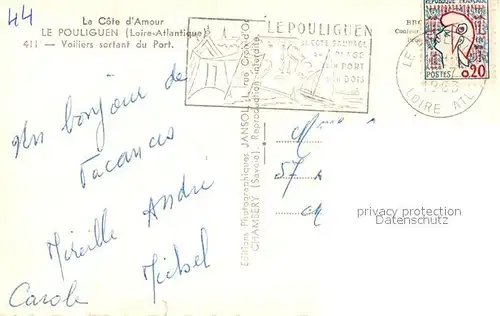 44
La Côte d'Amour
LE POULIGUEN (Loire-Atlantique)
411 — Voiliers sortant du Port.
LE POULIGUEN
SA COTE SAUVAGE
SA PLAGE
SON PORT
SON BOIS
REPUBLIQUE FRANÇAISE
POSTES
0,20
LOIRE ATL
Un bonjour de
Vacances
Mireille Andre
Michel
Carole
Editions Photographiques JANSOL, rue Croix-d'Or
CHAMBERY (Savoie). Reproduction interdite.
57
privacy protection
Datenschutz